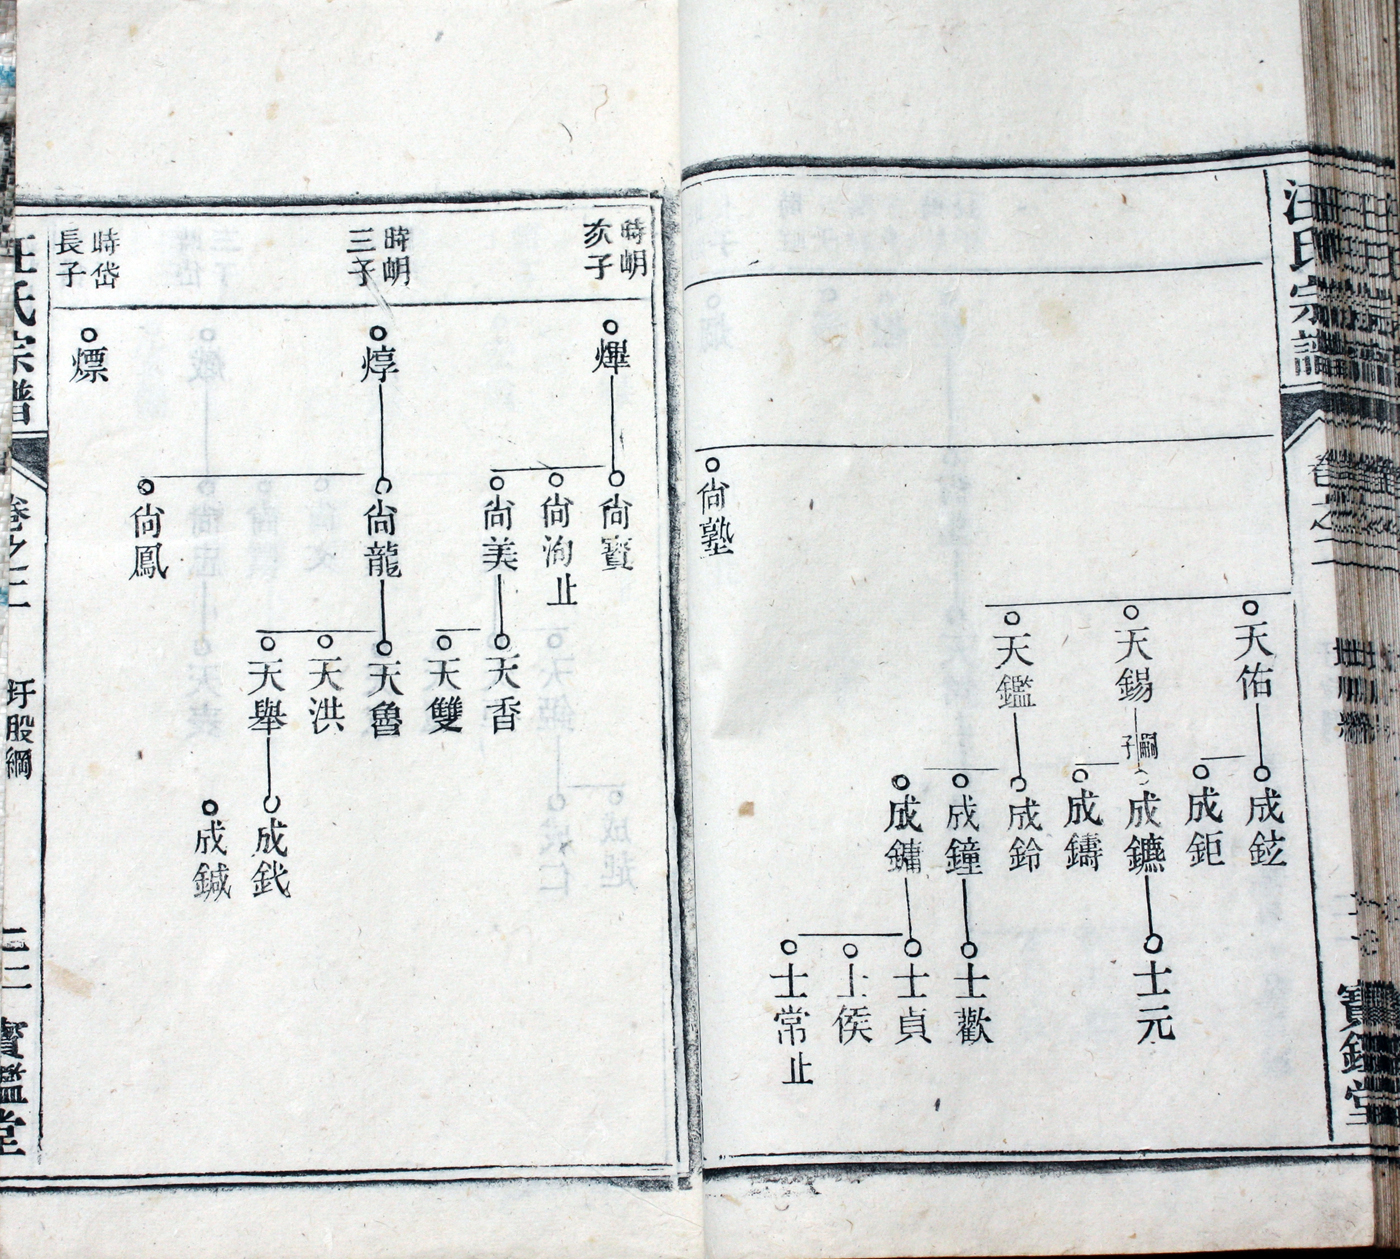 汪氏宗譜
卷之二
世系
寶鑑堂
尙塾
天佑
天錫
天鑑
嗣子
成鉉
成鉅
成鑣
成鑄
成鈴
成鐘
成鏞
士元
士歡
士貞
士侯
士常止
時明次子
時明三子
時岱長子
熚
焞
熛
尙寶
尙洵止
尙美
尙龍
尙鳳
天香
天雙
天魯
天洪
天舉
成鈛
成鍼
汪氏宗譜
卷之二
圩股綱
二二
寶鑑堂